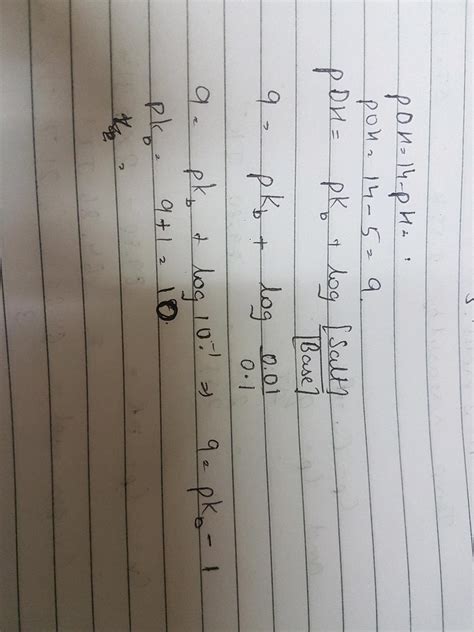 pOH = 14 - pH = .
pOH = 14 - 5 = 9
pOH = pKb + log [Salt]/[Base]
9 = pKb + log 0.01/0.1
9 = pKb + log 10⁻¹ ⇒ 9 = pKb - 1
pKb = 9 + 1 = 10.